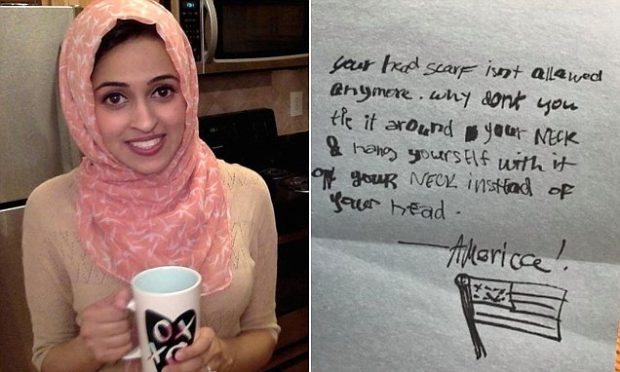 OX
XO
your head scarf isnt allowed
anymore. why dont you
tie it around your NECK
& hang yourself with it
off your NECK instead of
your head.
— America!